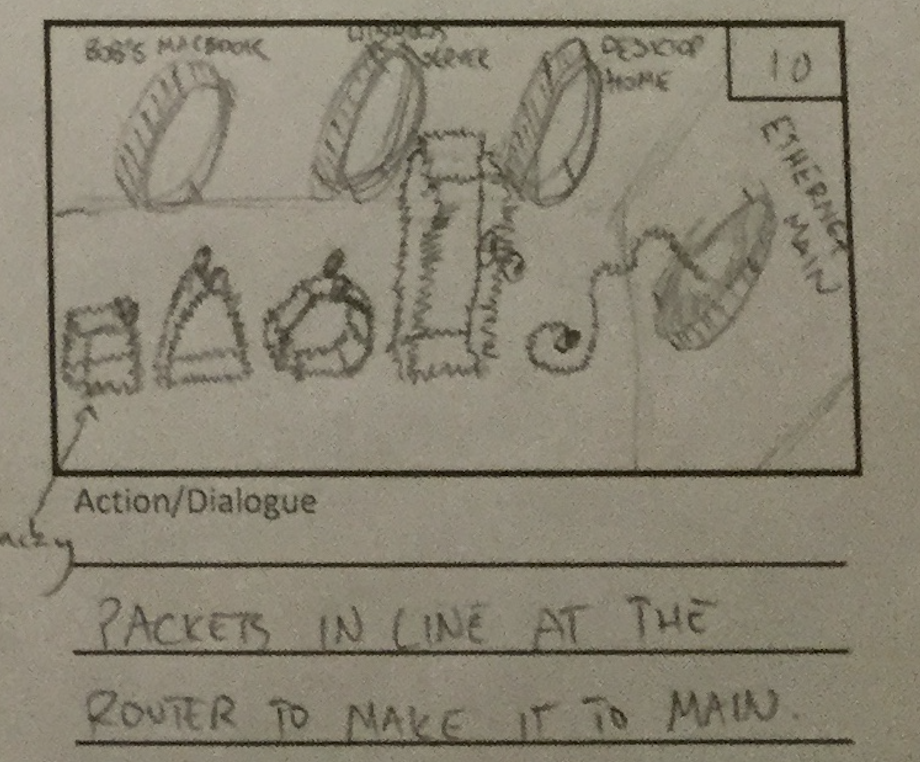 BOB'S MACBOOK
SERVER
DESKTOP
HOME
10
ETHERNET
MAIN
Action/Dialogue
PACKETS IN LINE AT THE
ROUTER TO MAKE IT TO MAIN.